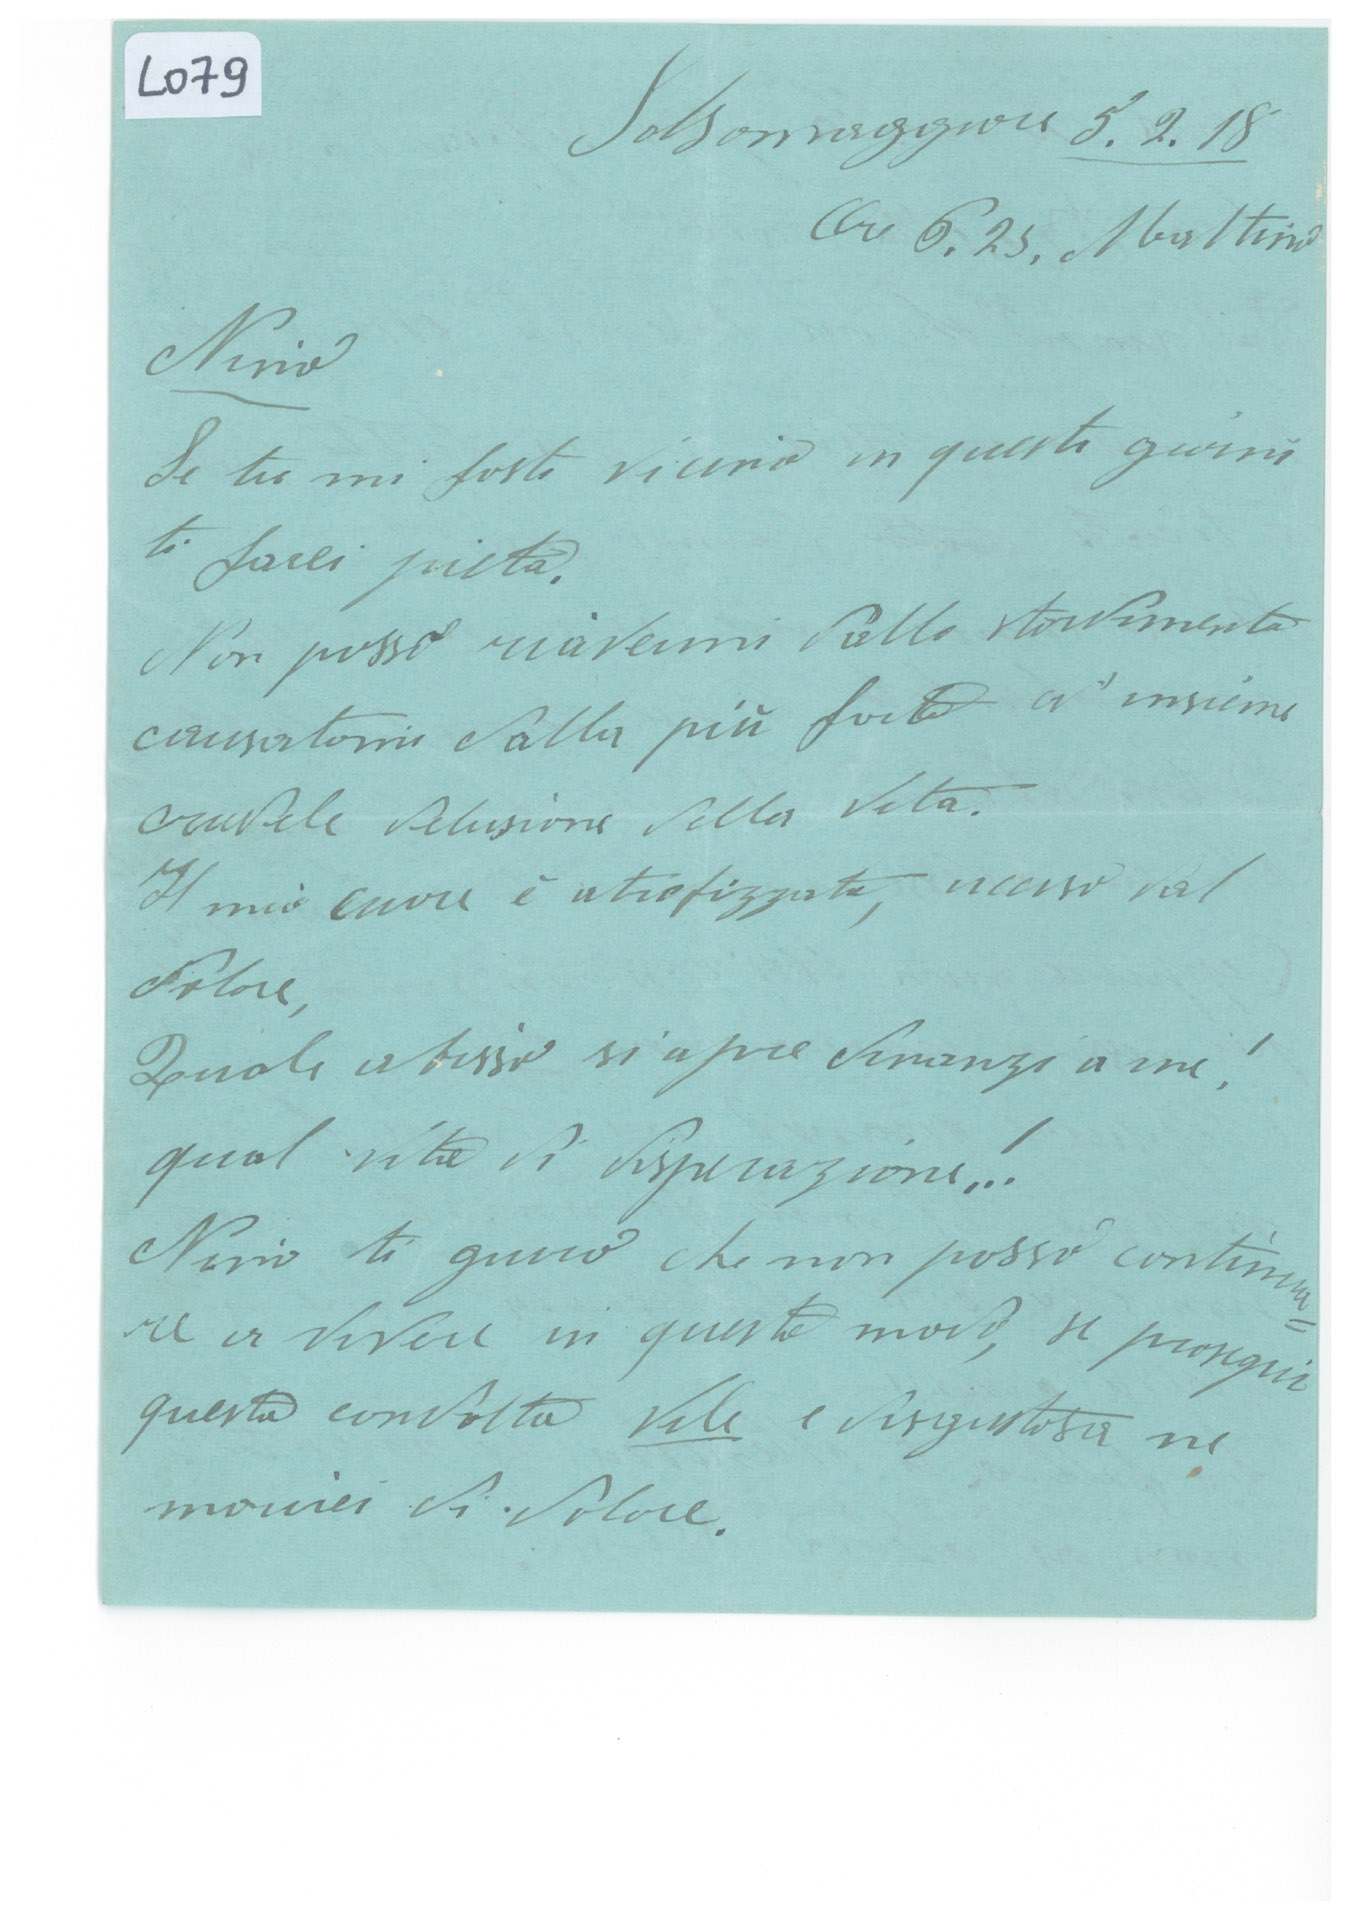 L079
Salsomaggiore 5.2.18
Ore 6.25. Mattino
Nino
Se tu mi fosti vicino in questi giorni
ti farei pietà.
Non posso riavermi dallo stordimento
causatomi dalla più forte ed insieme
crudele delusione della vita.
Il mio cuore è atrofizzato, ucciso dal
dolore,
Quale abisso si apre dinanzi a me!
qual vita di disperazione..!
Nino ti giuro che non posso continua=
re a vivere in questo modo, se prosegui
questa condotta vile e disgustosa ne
morirei di dolore.